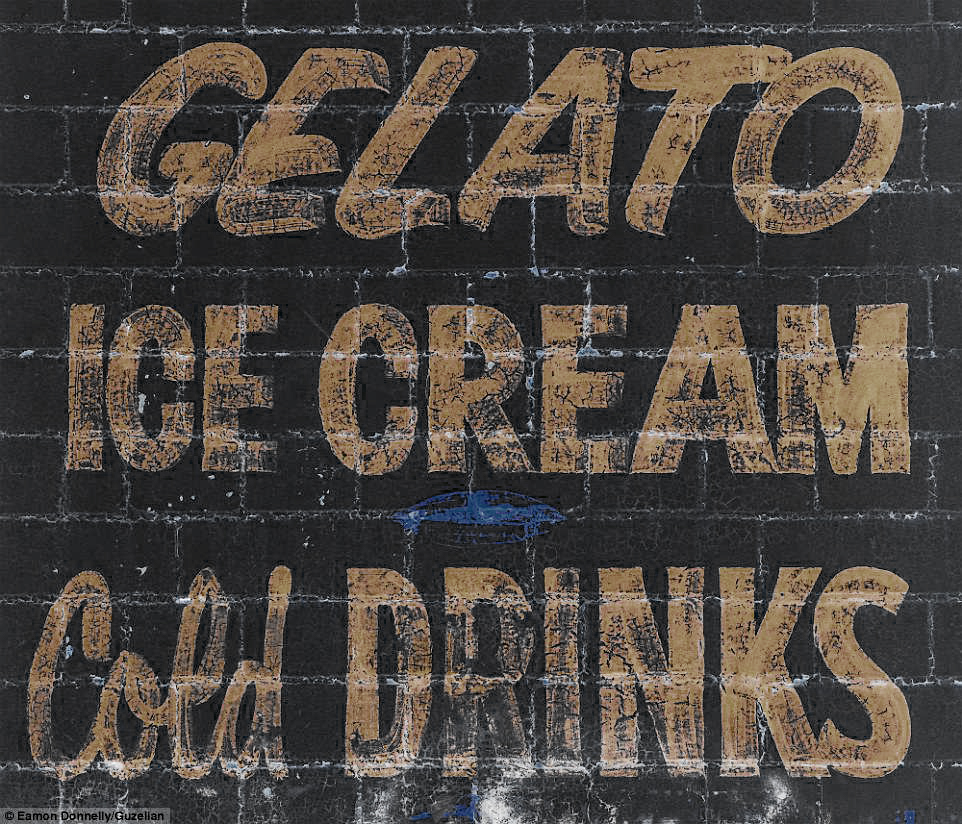 GELATO
ICE CREAM
Cold DRINKS
© Eamon Donnelly/Guzelian